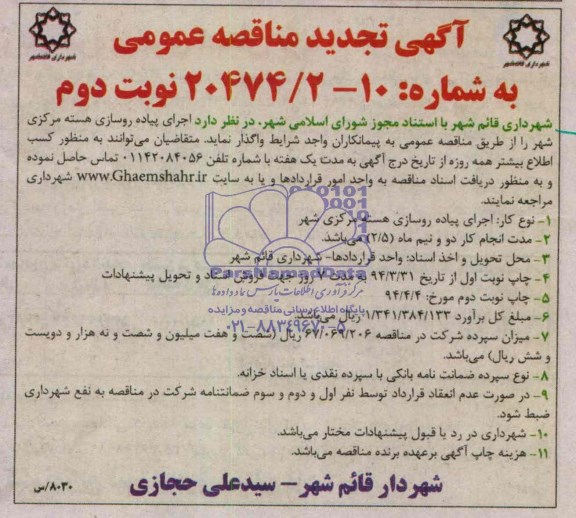 آگهی تجدید مناقصه عمومی
به شماره: ۱۰- ۲۰۴۷۴/۲ نوبت دوم
شهرداری قائم شهر
شهرداری قائمشهر
شهرداری قائم شهر با استناد مجوز شورای اسلامی شهر، در نظر دارد اجرای پیاده روسازی هسته مرکزی
شهر را از طریق مناقصه عمومی به پیمانکاران واجد شرایط واگذار نماید. متقاضیان می‌توانند به منظور کسب
اطلاع بیشتر همه روزه از تاریخ درج آگهی به مدت یک هفته با شماره تلفن ۰۱۱۴۲۰۸۴۰۵۶ تماس حاصل نموده
و به منظور دریافت اسناد مناقصه به واحد امور قراردادها و یا به سایت www.Ghaemshahr.ir شهرداری
مراجعه نمایند.
۱- نوع کار: اجرای پیاده روسازی هسته مرکزی شهر
۲- مدت انجام کار دو و نیم ماه (۲/۵) می‌باشد.
۳- محل تحویل و اخذ اسناد: واحد قراردادها- شهرداری قائم شهر
۴- چاپ نوبت اول از تاریخ ۹۴/۳/۳۱ به مدت ۷ روز جهت فروش اسناد و تحویل پیشنهادات
۵- چاپ نوبت دوم مورخ: ۹۴/۴/۴
۶- مبلغ کل برآورد ۱/۳۴۱/۳۸۴/۱۳۳ ریال می‌باشد.
۷- میزان سپرده شرکت در مناقصه ۶۷/۰۶۹/۲۰۶ ریال (شصت و هفت میلیون و شصت و نه هزار و دویست
و شش ریال) می‌باشد.
۸- نوع سپرده ضمانت نامه بانکی با سپرده نقدی یا اسناد خزانه.
۹- در صورت عدم انعقاد قرارداد توسط نفر اول و دوم و سوم ضمانتنامه شرکت در مناقصه به نفع شهرداری
ضبط شود.
۱۰- شهرداری در رد یا قبول پیشنهادات مختار می‌باشد.
۱۱- هزینه چاپ آگهی برعهده برنده مناقصه می‌باشد.
شهردار قائم شهر – سیدعلی حجازی
۸۰۳۰/س
ParsNamadData
مرکز فرآوری اطلاعات پارس نماد داده ها
پایگاه اطلاع رسانی مناقصه و مزایده
۰۲۱-۸۸۳۴۹۶۷۰-۵